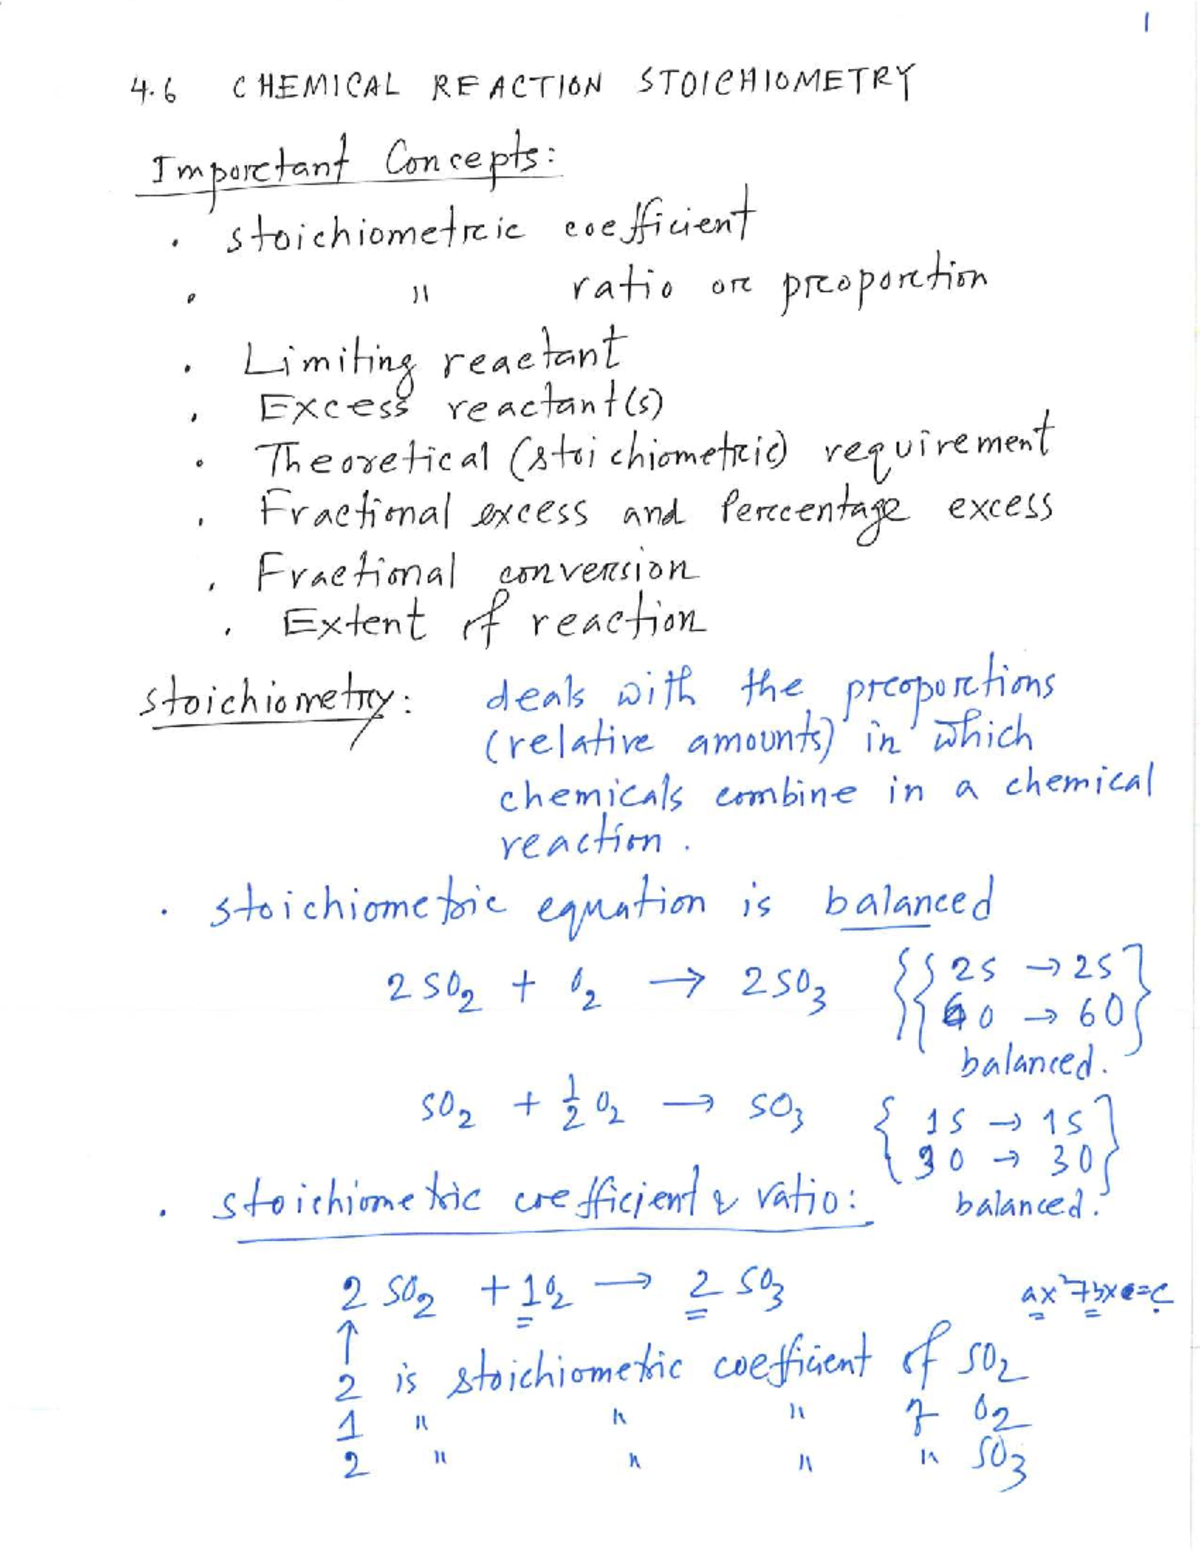 1
4.6 CHEMICAL REACTION STOICHIOMETRY
Important Concepts:
. stoichiometric coefficient
. " ratio or proportion
. Limiting reactant
. Excess reactant(s)
. Theoretical (stoichiometric) requirement
. Fractional excess and Percentage excess
. Fractional conversion
. Extent of reaction
stoichiometry: deals with the proportions
(relative amounts) in which
chemicals combine in a chemical
reaction.
. stoichiometric equation is balanced
2 SO₂ + O₂ → 2 SO₃ {{2S → 2S}
{{6O → 6O}
balanced.
SO₂ + ½ O₂ → SO₃ {1S → 1S}
{3O → 3O}
balanced.
. stoichiometric coefficient & ratio:
2 SO₂ + 1O₂ → 2 SO₃
↑
2 is stoichiometric coefficient of SO₂
1 " " " of O₂
2 " " " " SO₃